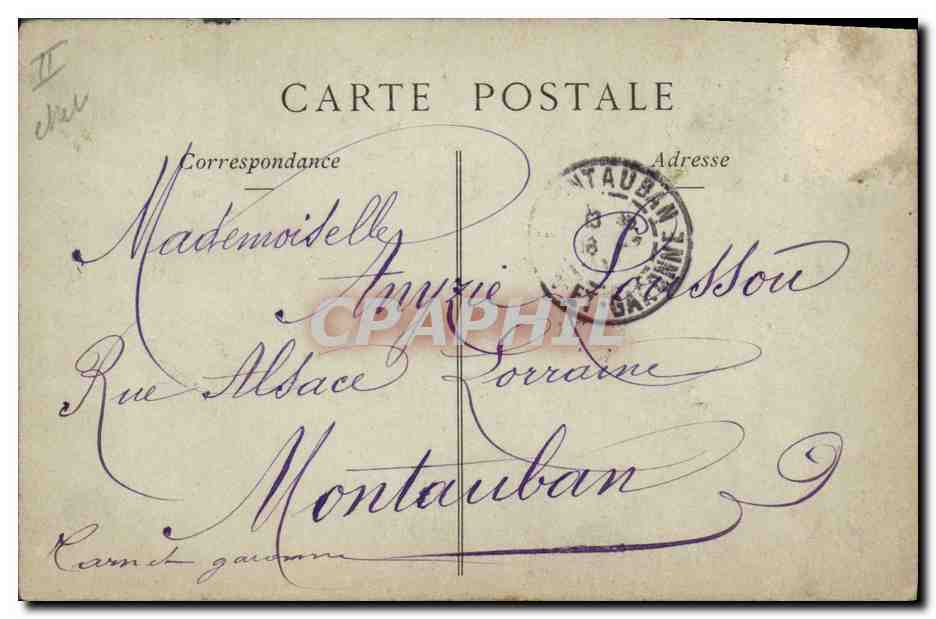 II
CARTE POSTALE
Correspondance
Adresse
MONTAUBAN
GARONNE
Mademoiselle
Anyzie Poisson
CPAPHIL
Rue Alsace Lorraine
Montauban
Tarn et garonne